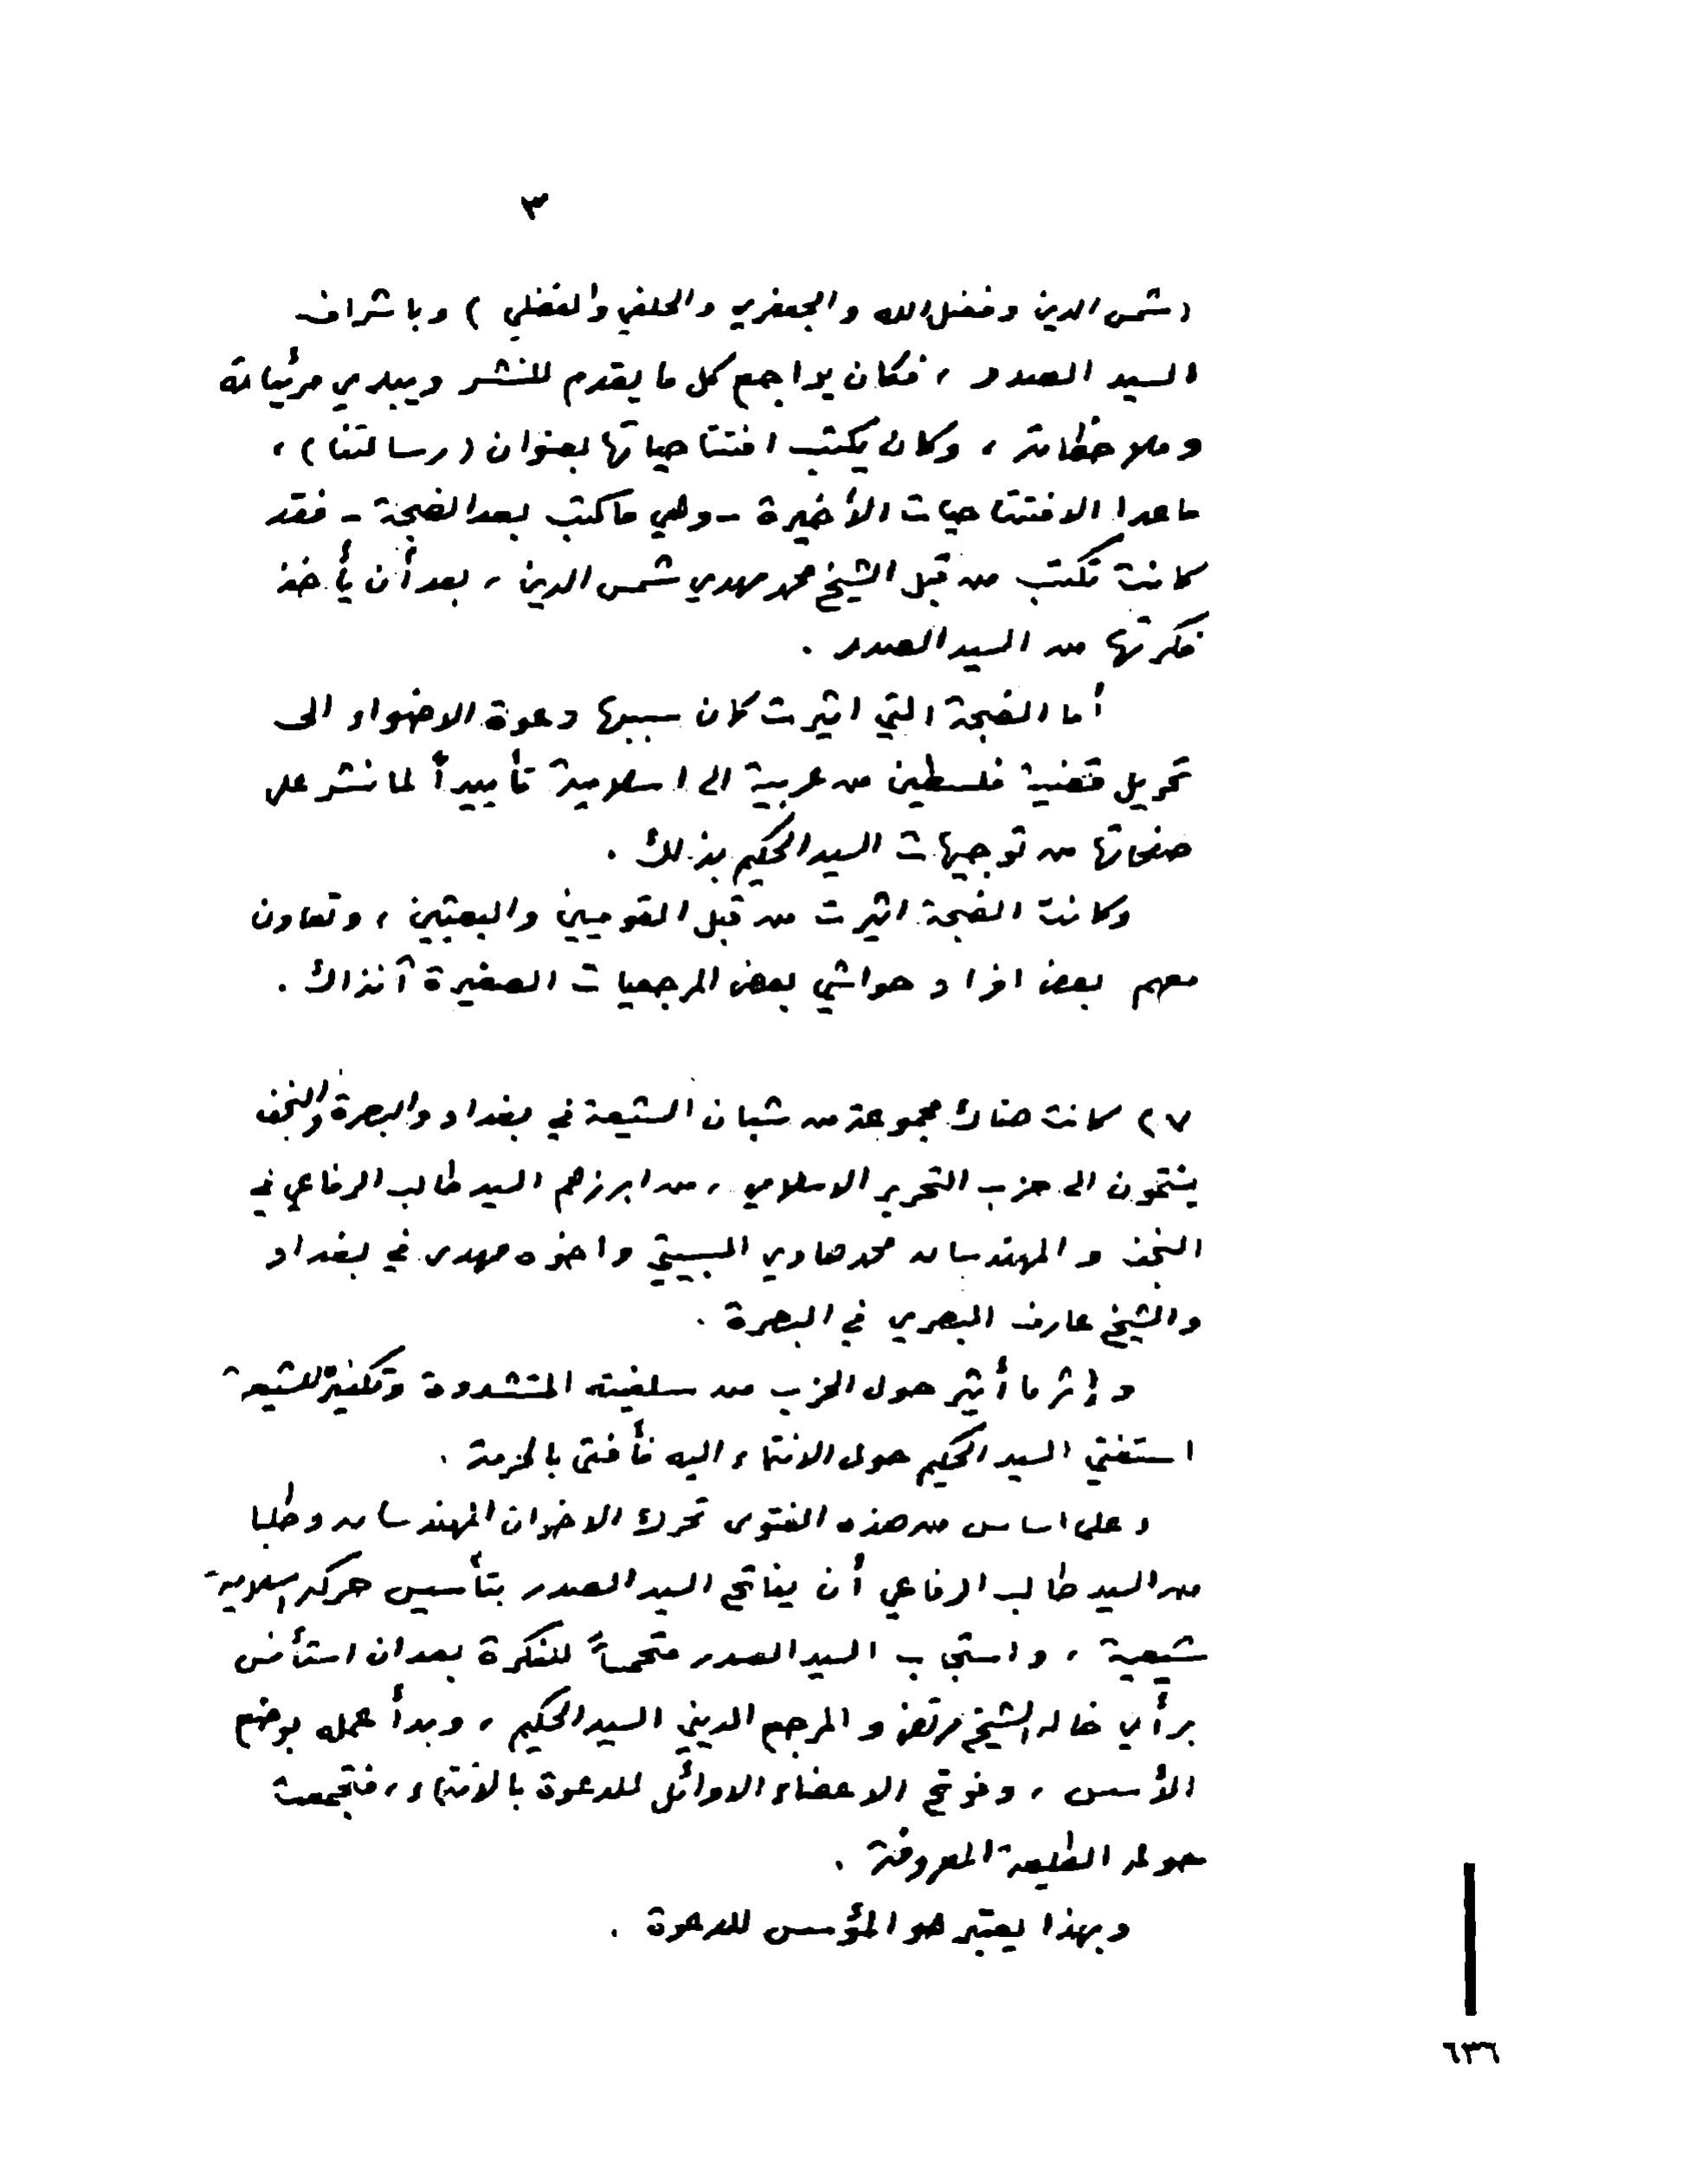 ٣
(شمس الدين وفضل الله والجعفري والخلفي والفضلي) وباشراف
السيد الصدر، فكان يراجع كل ما يقدم للنشر ويبدي مرئياته
وملاحظاته، وكان يكتب افتتاحياتها بعنوان (رسالتنا)،
ماعدا الافتتاحيات الأخيرة - وهي ما كتب بعد الضجة - فقد
كانت تكتب من قبل الشيخ محمد مهدي شمس الدين، بعد أن يأخذ
فكرتها من السيد الصدر.
أما الضجة التي اثيرت كان سببها دعوة الاضواء الى
تحويل قضية فلسطين من عربية الى اسلامية تأييداً لما نشر على
صفحاتها من توجيهات السيد الحكيم بذلك.
وكانت الضجة اثيرت من قبل القوميين والبعثيين، وتعاون
معهم بعض افراد حواشي بعض المرجعيات الصغيرة آنذاك.
٧) كانت هناك مجموعة من شبان الشيعة في بغداد والبصرة والنجف
ينتمون الى حزب التحرير الاسلامي، من ابرزهم السيد طالب الرفاعي في
النجف والمهندسان محمد هادي السبيتي واخوه مهدي في بغداد
والشيخ عارف البصري في البصرة.
وإثر ما أثير حول الحزب من سلفيته المتشددة وتكفيره للشيعة
استفتي السيد الحكيم حول الانتماء اليه فأفتى بالحرمة.
وعلى اساس من هذه الفتوى تحرك الاخوان المهندسان وطلبا
من السيد طالب الرفاعي أن يفاتح السيد الصدر بتأسيس حركة اسلامية
شيعية، واستجاب السيد الصدر متحمساً للفكرة بعد ان استأنس
برأي خاله الشيخ مرتضى والمرجع الديني السيد الحكيم، وبدأ عمله بوضع
الأسس، وفوتح الاعضاء الاوائل للدعوة بالانتماء، فتجمعت
حوله الطليعة المعروفة.
وبهذا يعتبر هو المؤسس للدعوة.
٦٣٦